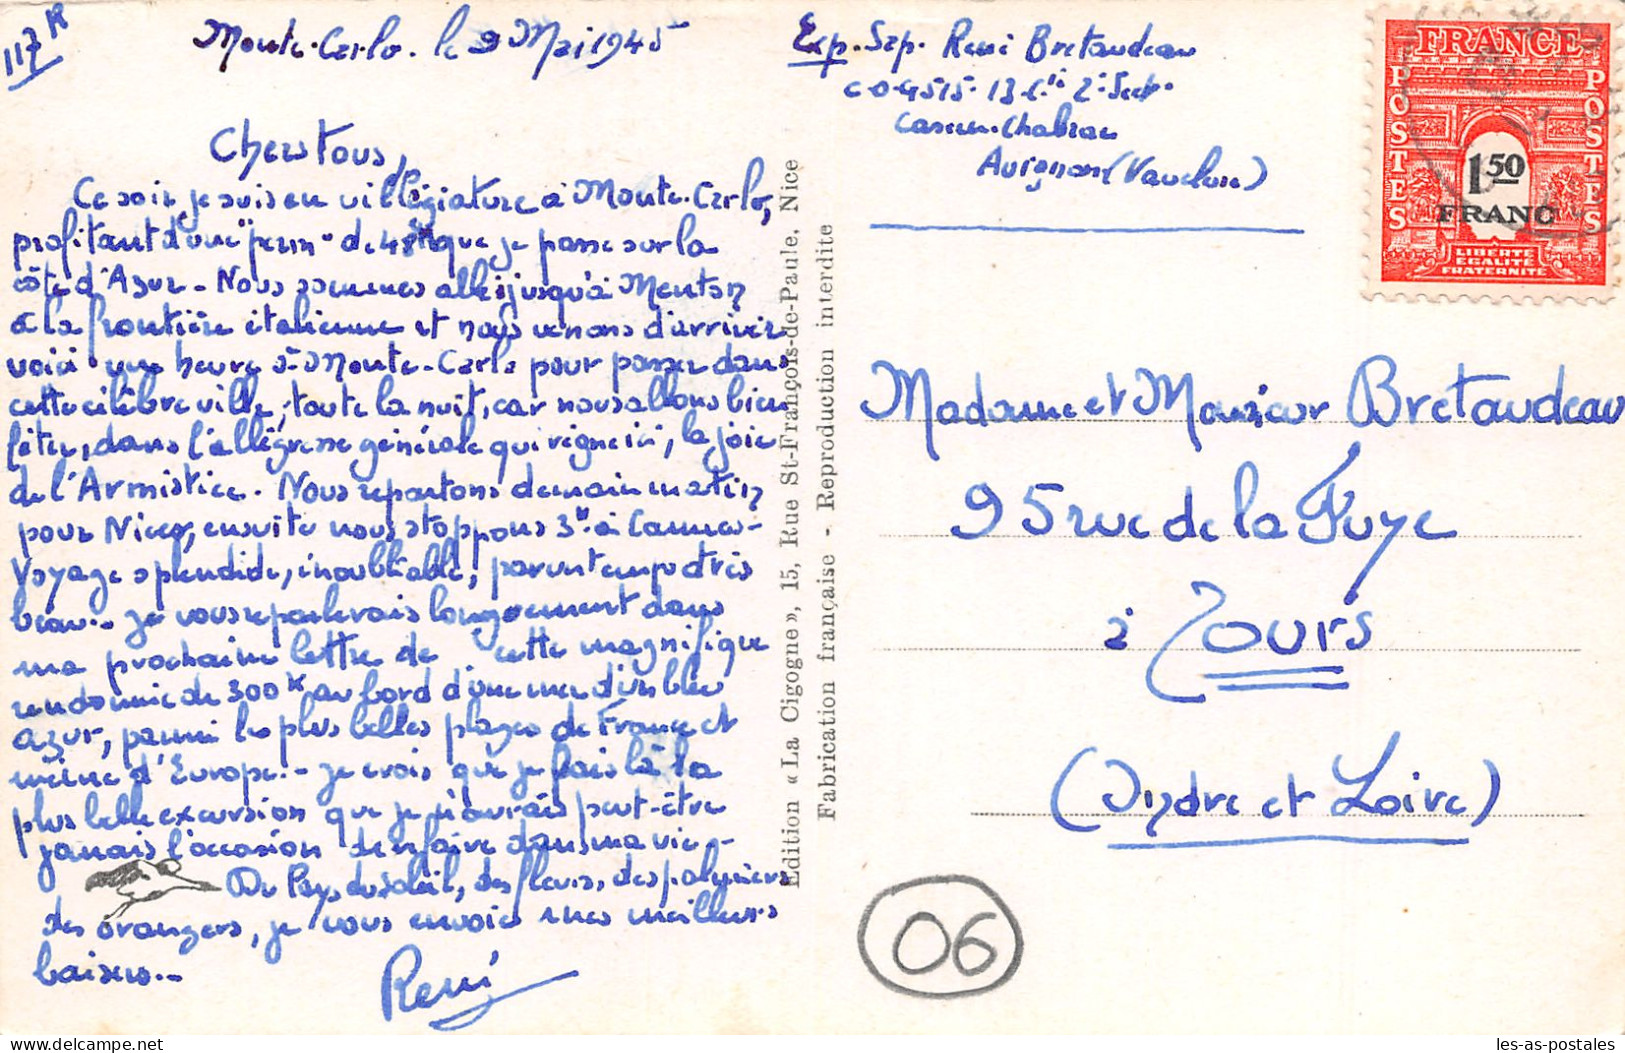 117 R
Monte-Carlo. le 9 Mai 1945
Chers tous,
Ce soir, je suis en villégiature à Monte-Carlo,
profitant d'une "perm" de 48h que je passe sur la
côte d'Azur - Nous sommes allés jusqu'à Menton
à la frontière italienne et nous venons d'arriver
voici une heure à Monte-Carlo pour passer dans
cette célèbre ville, toute la nuit, car nous allons bien
fêter, dans l'allégresse générale qui règne ici, la joie
de l'Armistice. Nous repartons demain matin
pour Nice, ensuite nous stoppons 3h à Cannes -
Voyage splendide, inoubliable, par un temps très
beau - Je vous reparlerais longuement dans
ma prochaine lettre de cette magnifique
randonnée de 300 K au bord d'une mer d'un bleu
azur, parmi les plus belles plages de France et
même d'Europe. - Je crois que je fais là la
plus belle excursion que je n'aurais peut-être
jamais l'occasion de refaire dans ma vie -
Du Pays du soleil, des fleurs, des palmiers
des orangers, je vous envoie mes meilleurs
baisers. -
René
Edition « La Cigogne », 15, Rue St-François-de-Paule, Nice
Fabrication française - Reproduction interdite
Exp. Sap. René Bretaudeau
C.O.4515 - 13 Cie 2e Sect.
Caserne Chabran
Avignon (Vaucluse)
FRANCE
POSTES
POSTES
1.50
FRANC
LIBERTÉ
EGALITÉ
FRATERNITÉ
Madame et Monsieur Bretaudeau
95 rue de la Fuye
à Tours
(Indre et Loire)
06
les-as-postales